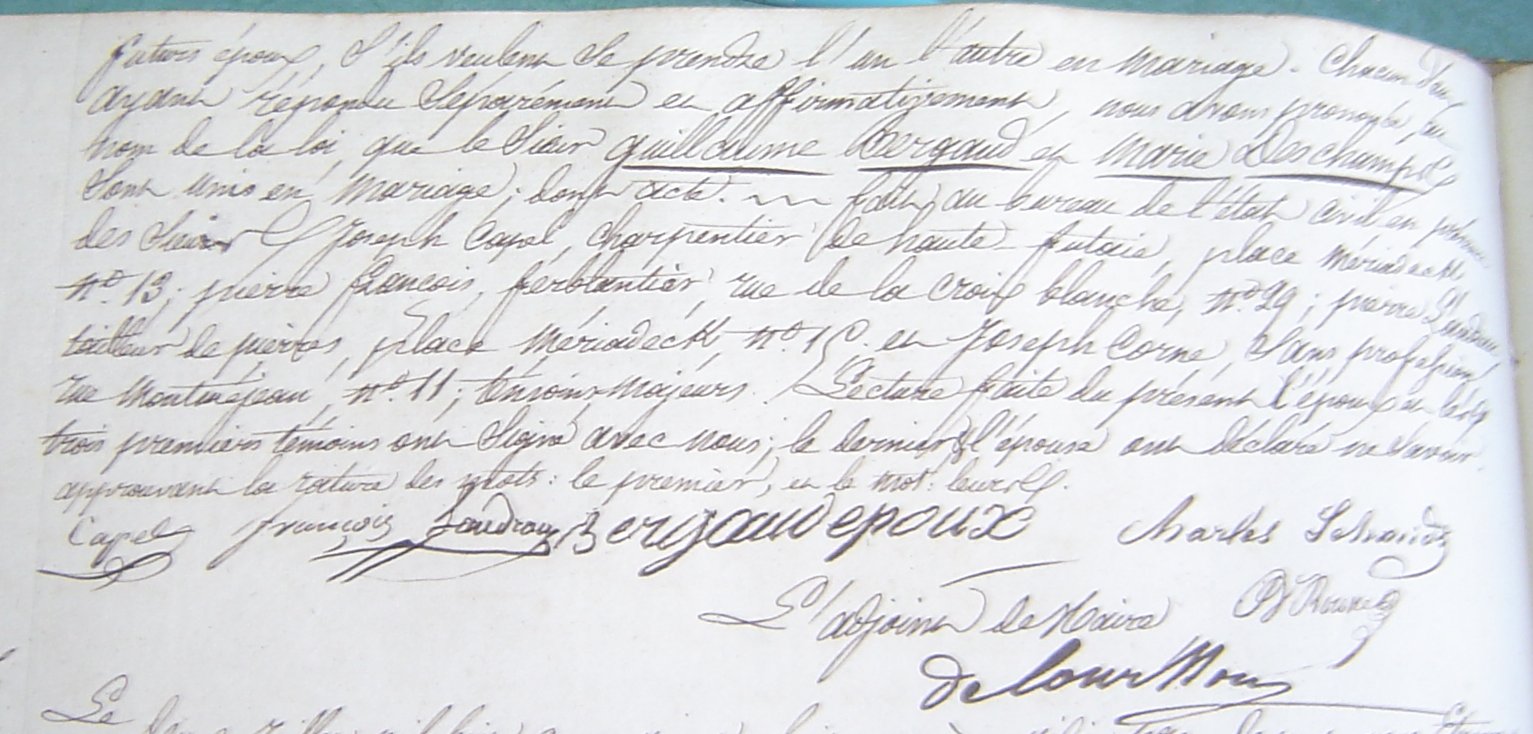 futurs époux, s'ils veulent se prendre l'un l'autre en mariage. Chacun d'eux
ayant répondu séparément et affirmativement, nous avons prononcé, au
nom de la loi, que le sieur guillaume Bergaud et Marie Deschamps
sont unis en mariage; dont acte. fait au bureau de l'état civil en présence
des sieurs Joseph Capel, charpentier de haute-futaie, place Mériadeck
n.° 13; pierre françois, ferblantier, rue de la croix blanche, n.° 29; pierre
tailleur de pierres, place Mériadeck, n.° 15. et Joseph Corne, sans profession,
rue Montméjean, n.° 11; témoins majeurs. Lecture faite du présent l'époux et les
trois premiers témoins ont signé avec nous; le dernier & l'épouse ont déclaré ne savoir.
approuvant la rature des mots: le premier, et le mot: leurs.
Capel françois Bergaud epoux Charles
L'adjoint de Maire
Le